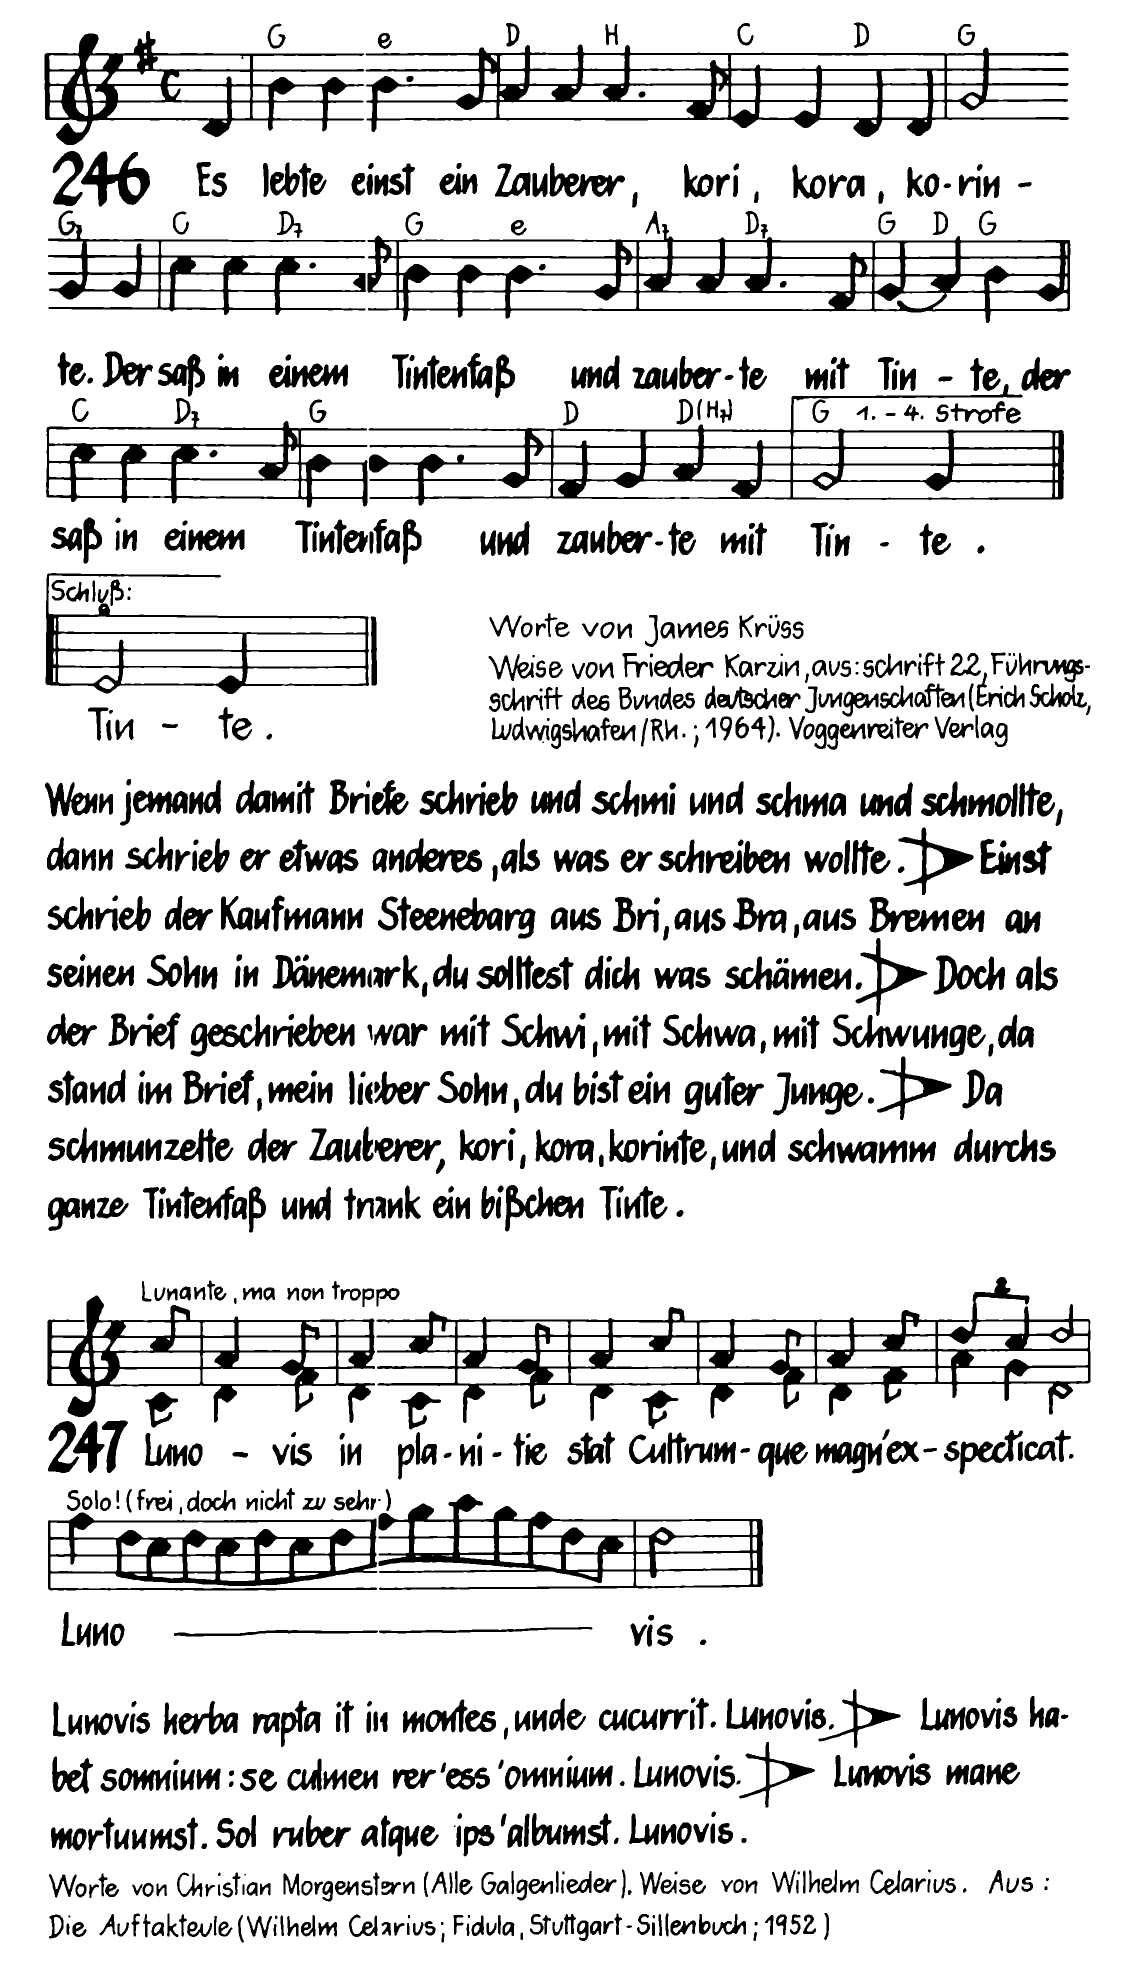 G e D H C D G
246 Es lebte einst ein Zauberer, kori, kora, ko-rin-
G7 C D7 G e A7 D7 G D G
te. Der saß in einem Tintenfaß und zauber-te mit Tin - te, der
C D7 G D D(H7) G 1.-4. Strofe
saß in einem Tintenfaß und zauber-te mit Tin - te.
Schluß:
e
Tin - te.
Worte von James Krüss
Weise von Frieder Karzin, aus: schrift 22, Führungs-
schrift des Bundes deutscher Jungenschaften (Erich Scholz,
Ludwigshafen/Rh.; 1964). Voggenreiter Verlag
Wenn jemand damit Briefe schrieb und schmi und schma und schmollte,
dann schrieb er etwas anderes, als was er schreiben wollte. Einst
schrieb der Kaufmann Steenebarg aus Bri, aus Bra, aus Bremen an
seinen Sohn in Dänemark, du solltest dich was schämen. Doch als
der Brief geschrieben war mit Schwi, mit Schwa, mit Schwunge, da
stand im Brief, mein lieber Sohn, du bist ein guter Junge. Da
schmunzelte der Zauberer, kori, kora, korinte, und schwamm durchs
ganze Tintenfaß und trank ein bißchen Tinte.
Lunante, ma non troppo
2
247 Luno - vis in pla-ni-tie stat Cultrum-que magn'ex-specticat.
Solo! (frei, doch nicht zu sehr)
Luno vis.
Lunovis herba rapta it in montes, unde cucurrit. Lunovis. Lunovis ha-
bet somnium: se culmen rer'ess'omnium. Lunovis. Lunovis mane
mortuumst. Sol ruber atque ips'albumst. Lunovis.
Worte von Christian Morgenstern (Alle Galgenlieder). Weise von Wilhelm Celarius. Aus:
Die Auftakteule (Wilhelm Celarius; Fidula, Stuttgart-Sillenbuch; 1952)